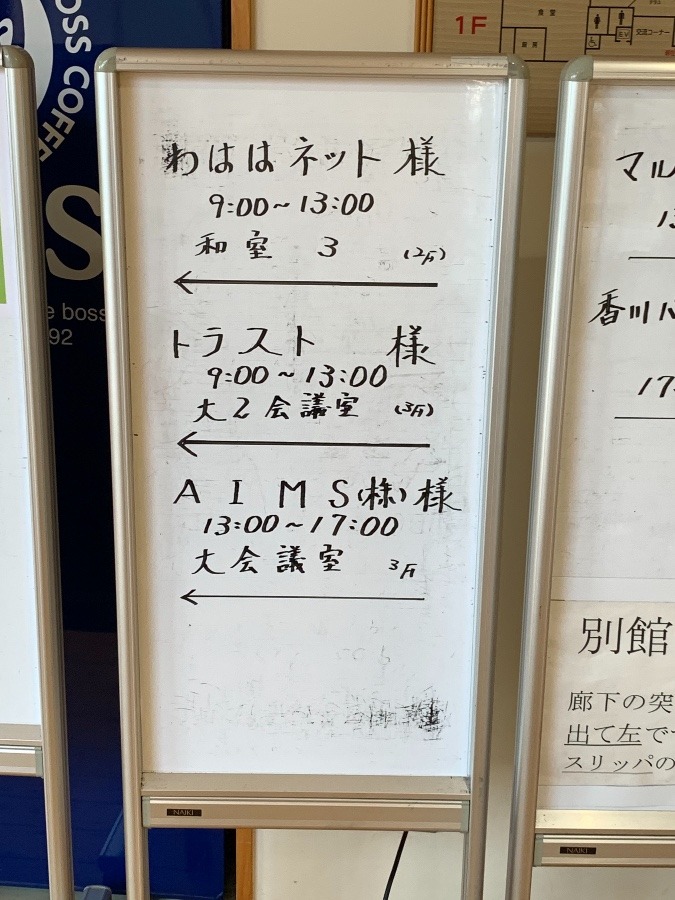 OSS COFF
S
e boss
92
1F
食堂
厨房
EV
交流コーナー
わははネット 様
9:00~13:00
和室 3 (2F)
トラスト 様
9:00~13:00
大2会議室 (3F)
AIMS(株)様
13:00~17:00
大会議室 3F
NAIKI
マル
13
香川
17
別館
廊下の突
出て左で
スリッパの
NAIKI